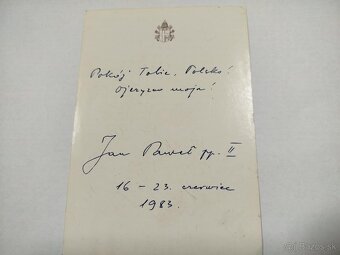 Pokój Tobie, Polsko!
Ojczyzno moja!
Jan Paweł pp. II
16 - 23. czerwiec
1983.